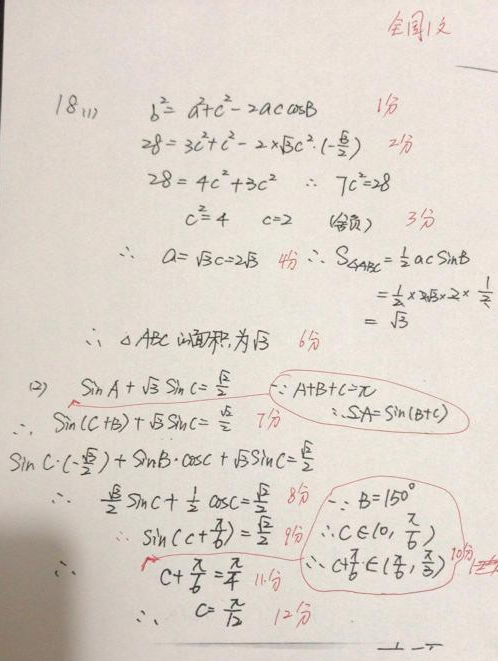 全国1文
18(1) b²=a²+c²-2accosB 1分
28=3c²+c²-2×√3c²·(-√3/2) 2分
28=4c²+3c² ∴ 7c²=28
c²=4 c=2 (舍负) 3分
∴ a=√3c=2√3 4分 ∴ S△ABC=1/2acSinB
=1/2×2√3×2×1/2
=√3
∴ △ABC的面积为√3 6分
(2) SinA+√3SinC=√2/2 ∵A+B+C=π
∴ Sin(C+B)+√3SinC=√2/2 7分 ∴SA=Sin(B+C)
SinC·(-√3/2)+SinB·cosC+√3SinC=√2/2
∴ √3/2SinC+1/2cosC=√2/2 8分 ∵B=150°
∴ Sin(C+π/6)=√2/2 9分 ∴C∈(0,π/6)
∴ C+π/6=π/4 11分 ∴C+π/6∈(π/6,π/3) 10分
∴ C=π/12 12分